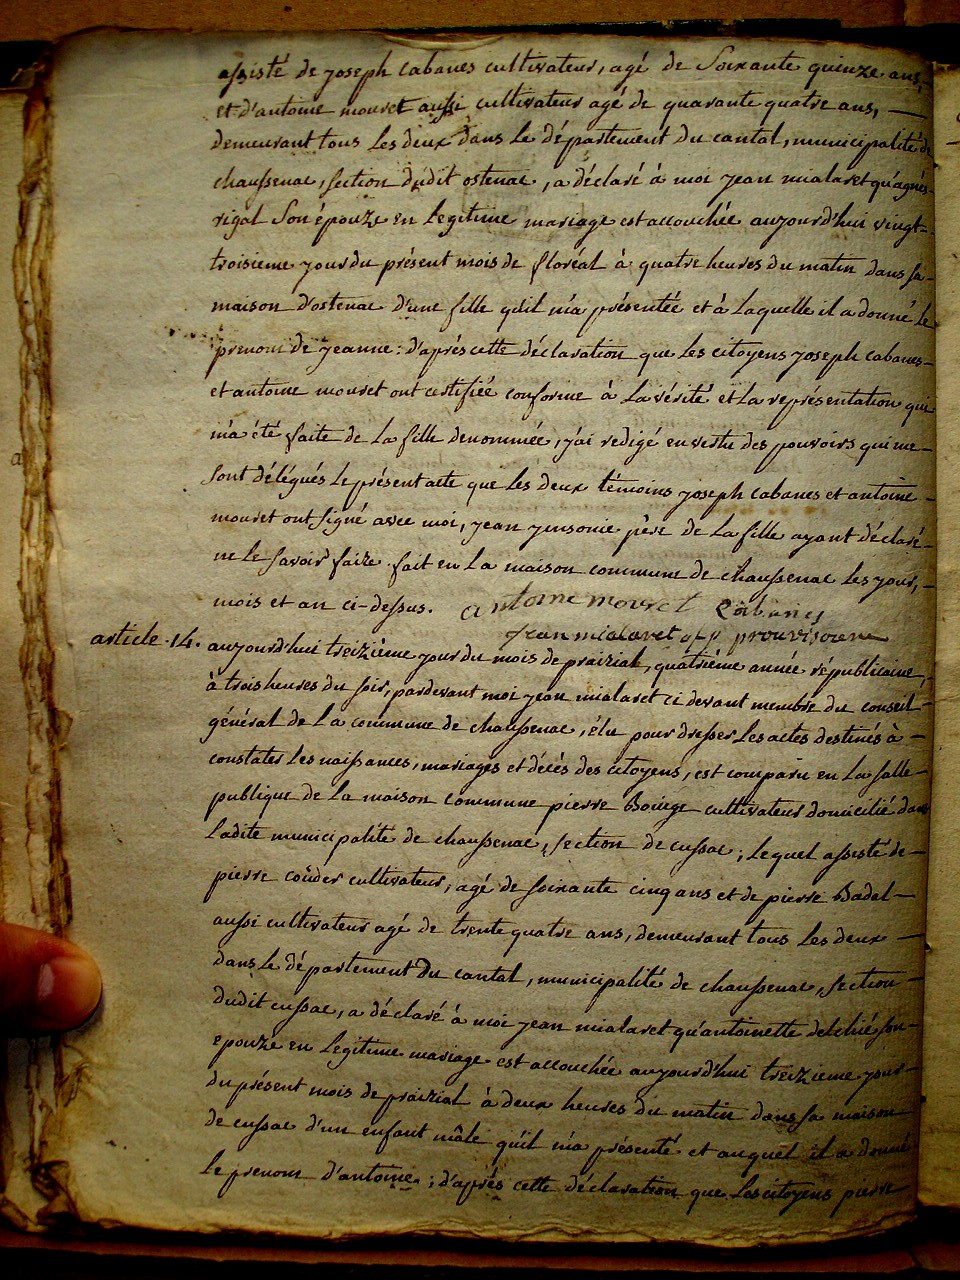 assisté de joseph Cabanes cultivateur, agé de Soixante quinze ans,
et d'antoine mouret aussi cultivateur agé de quarante quatre ans, —
demeurant tous les deux dans le département du cantal, municipalité de
chaussenac, section dudit ostenac, a déclaré à moi jean mialaret qu'agnés
rigal Son épouze en legitime mariage est accouchée aujourd'hui vingt-
troisieme jour du présent mois de floréal à quatre heures du matin dans sa
maison d'ostenac d'une fille qu'il m'a présentée et à laquelle il a donné le
prenom de jeanne : d'aprés cette déclaration que les citoyens joseph cabanes
et antoine mouret ont certifiée conforme à la vérité et la représentation qui
m'a été faite de la fille denommée, j'ai redigé en vertu des pouvoirs qui me
sont délégués le présent acte que les deux témoins joseph cabanes et antoine
mouret ont signé avec moi, jean père de la fille ayant déclaré
ne le savoir faire. fait en la maison commune de chaussenac les jour,
mois et an ci-dessus. antoine mouret Cabanes
jean mialaret off prouvisoire
article 14. aujourd'hui treizième jour du mois de prairial, quatriéme année républicaine,
à trois heures du soir, pardevant moi jean mialaret ci devant membre du conseil
général de la commune de chaussenac, élu pour dresser les actes destinés à
constater les naissances, mariages et décés des citoyens, est comparu en la salle
publique de la maison commune pierre Bouige cultivateur domicilié dans
ladite municipalité de chaussenac, section de cussac ; lequel assisté de
pierre couder cultivateur, agé de soixante cinq ans et de pierre Badal
aussi cultivateur agé de trente quatre ans, demeurant tous les deux
dans le département du cantal, municipalité de chaussenac, section
dudit cussac, a déclaré à moi jean mialaret qu'antoinette delchié son
epouze en legitime mariage est accouchée aujourd'hui treizieme jour
du présent mois de prairial à deux heures du matin dans sa maison
de cussac d'un enfant mâle qu'il m'a présenté et auquel il a donné
le prenom d'antoine ; d'aprés cette déclaration que les citoyens pierre